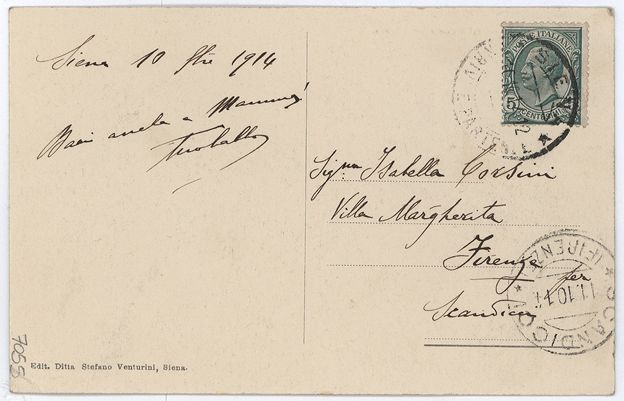 Siena 10 8bre 1914
Baci anche a Mamma!
Sigra Isabella Corsini
Villa Margherita
Firenze per
Scandicci
POSTE ITALIANE
5
CENTESIMI
PARTENZE
SCANDICCI
(FIRENZE)
11.10.14
7055
Edit. Ditta Stefano Venturini, Siena.